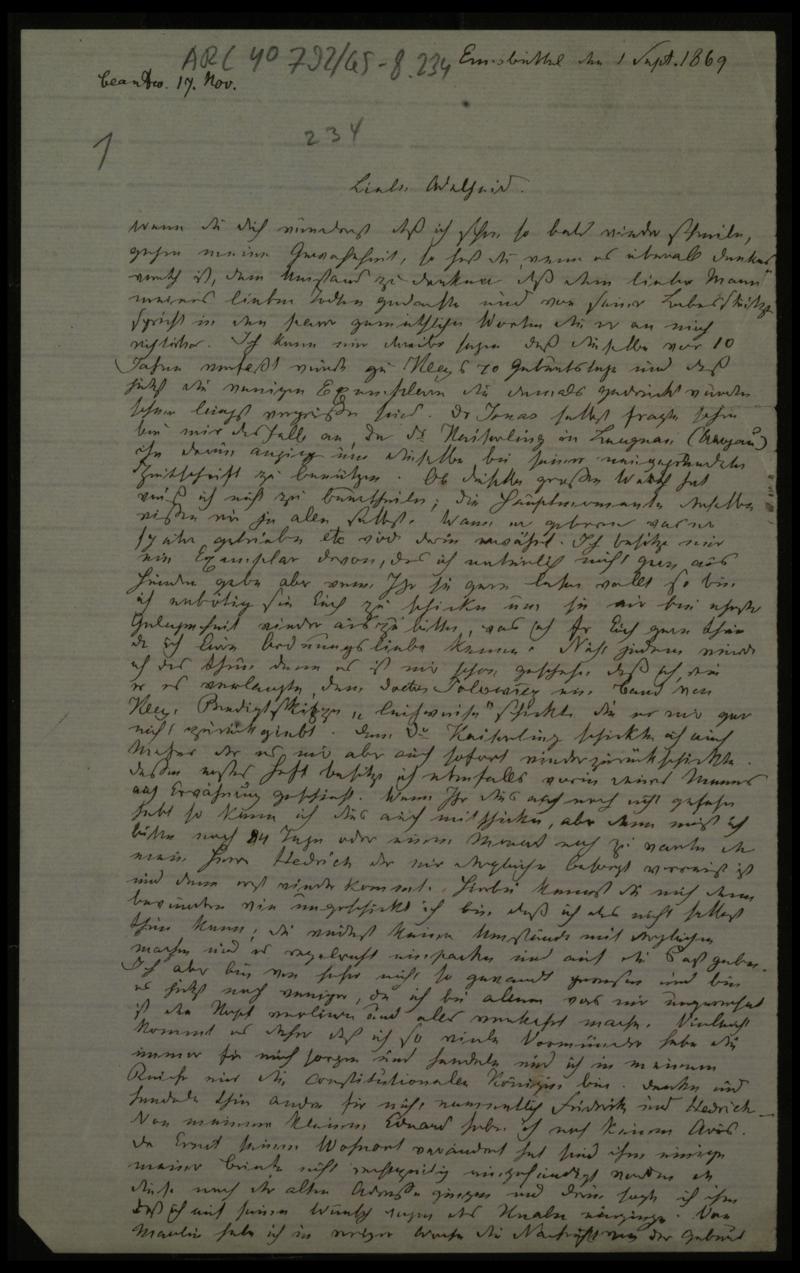 ARC 40 792/a5-8.234 Eimsbüttel den 1 Sept. 1869
beantw. 17. Nov.
1 234
Liebe Adelheid.
wenn du dich wunderst daß ich schon so bald wieder schreibe,
gegen meine Gewohnheit, so hast du, wenn es überall dankens
werth ist, dem Umstand zu danken daß dein lieber Mann
meines lieben Todten gedachte und von seiner Lebensskizze
spricht in den paar gemüthlichen Worten die er an mich
richtete. Ich kann nur darüber sagen daß dieselbe vor 10
Jahren verfaßt wurde zu Kleys 70 Geburtstage und daß
jetzt die wenigen Exemplare die damals gedruckt wurden
schon längst vergriffen sind. Dr Jonas selbst fragte schon
bei mir deshalb an, da Dr Kaiserling in Lengnau (Aargau)
ihn darum anging um dieselbe bei seiner neugegründeten
Zeitschrift zu benützen. Ob dieselbe großen Werth hat
weiß ich nicht zu beurtheilen; die Hauptmomente derselben
wissen wir ja alle selbst. Wann er geboren was er
später getrieben etc wird darin erwähnt. Ich besitze nur
ein Exemplar davon, das ich natürlich nicht gern aus
Händen gebe aber wenn Ihr sie gern lesen wollt so bin
ich erbötig sie Euch zu schicken um sie mir bei erster
Gelegenheit wieder auszubitten, was ich für Euch gern thue
da ich Eure Ordnungsliebe kenne. Nicht jedem würde
ich das thun denn es ist mir schon geschehen daß ich, wie
er es verlangte, dem Doctor einen Band von
Kleys Predigtskizzen "leihweise" schickte die er mir gar
nicht zurückgiebt. Dem Dr Kaiserling schickte ich auch
der es mir aber auch sofort wieder zurückschickte.
dessen erstes Heft besitze ich ebenfalls worin deines Mannes
auch Erwähnung geschieht. Wenn Ihr dies auch noch nicht gesehen
habt so kann ich dies auch mitschicken, aber dann müßt ich
bitten noch 14 Tage oder einen Monat noch zu warten da
mein Herr Hedrich der mir dergleichen besorgt verreist ist
und dann erst wieder kommt. Hierbei kannst du mich denn
bewundern wie ungeschickt ich bin daß ich das nicht selbst
thun kann; du würdest keine Umstände mit dergleichen
machen und es regelrecht einpacken und auf die Post geben.
Ich aber bin von jeher nicht so gewandt gewesen und bin
es jetzt noch weniger, da ich bei allem was mir ungewohnt
ist den Kopf verliere und alles verkehrt mache. Vielleicht
kommt es daher daß ich so viele Vormünder habe die
immer für mich sorgen und handeln und ich in meinem
Reiche nur die constitutionelle Königin bin. Denken und
handeln thun andre für mich, namentlich Friderike und Hedrich.
Von meinem kleinen Eduard habe ich noch keinen Avis.
Da Ernst seinen Wohnort verändert hat sind ihm einige
meiner Briefe nicht rechtzeitig eingehändigt worden da
diese nach der alten Adresse gingen und darin sagte ich ihm
daß ich auf seinen Wunsch wegen des Knaben einginge. Von
habe ich in voriger Woche die Nachricht von der Geburt